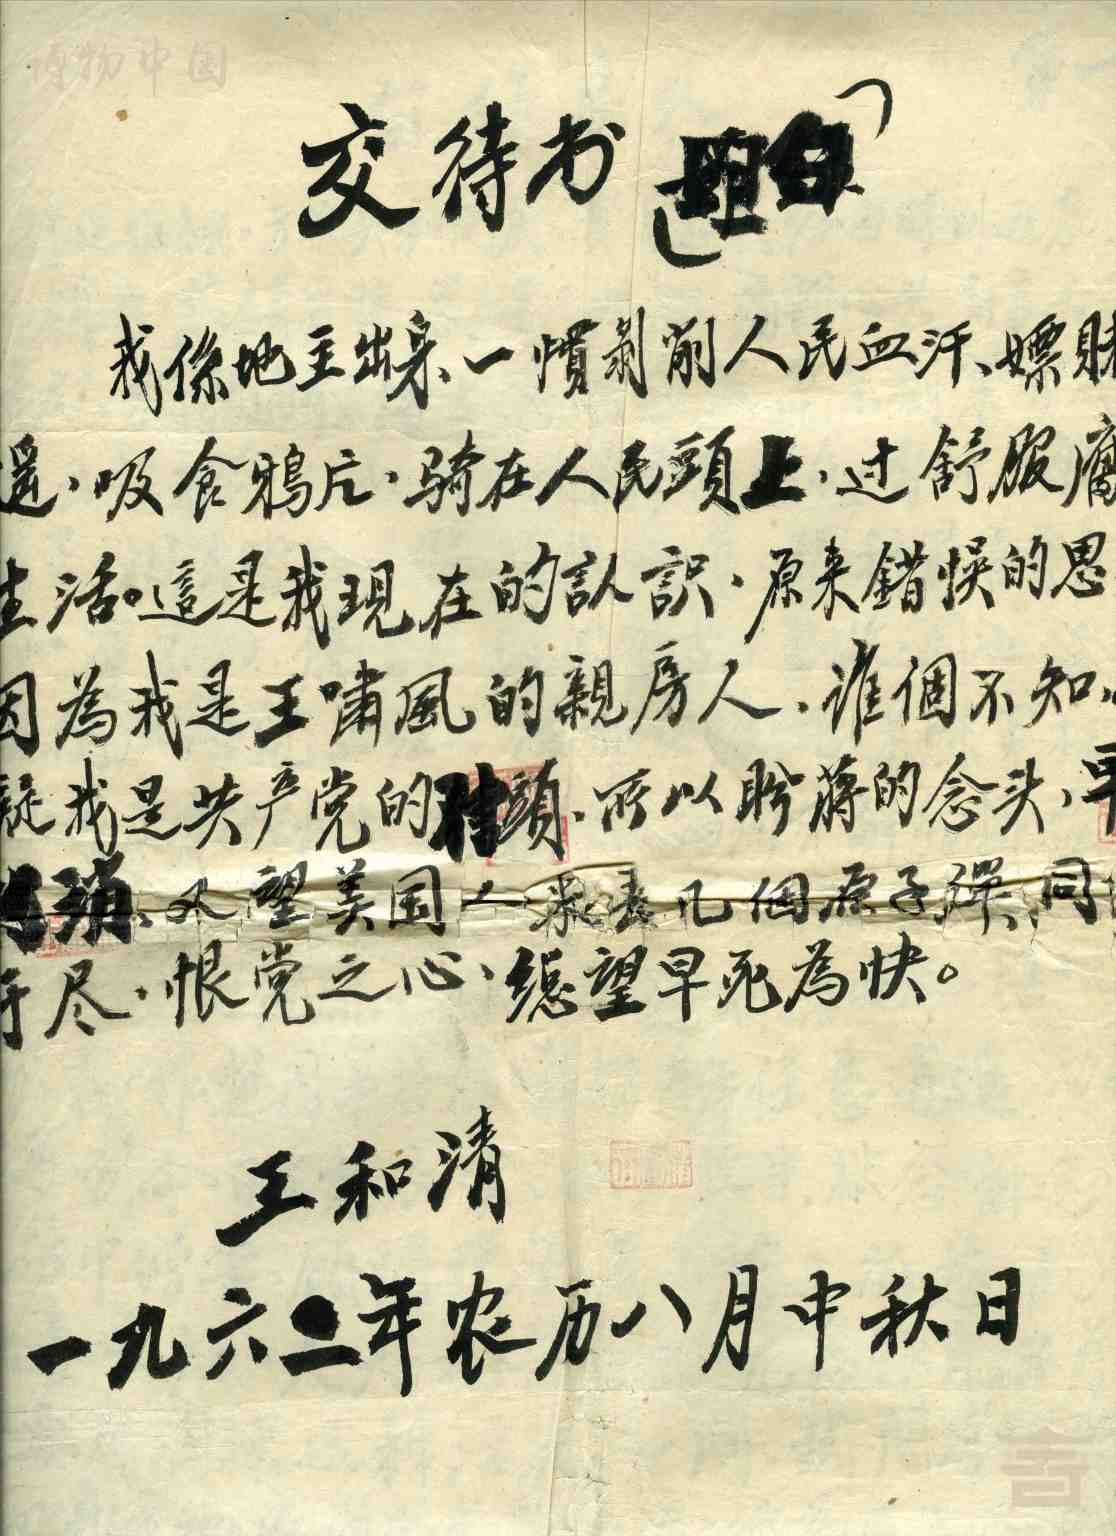 博物中国
交待书
我係地主出身、一慣剥削人民血汗、嫖賭
遥、吸食鴉片、騎在人民頭上、过舒服腐
生活。這是我現在的認識、原来錯悮的思
因為我是王嘯風的親房人、谁個不知、
疑我是共产党的對頭、所以盼蒋的念头、早
消、又望美国人来丢几個原子弹、同
尽、恨党之心、總望早死為快。
王和清
一九六二年农历八月中秋日